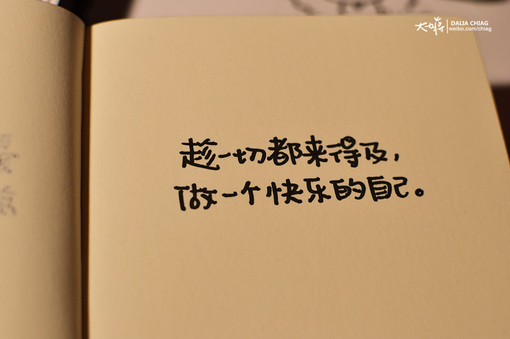 DALIA CHIAG
weibo.com/chiag
趁一切都来得及，
做一个快乐的自己。